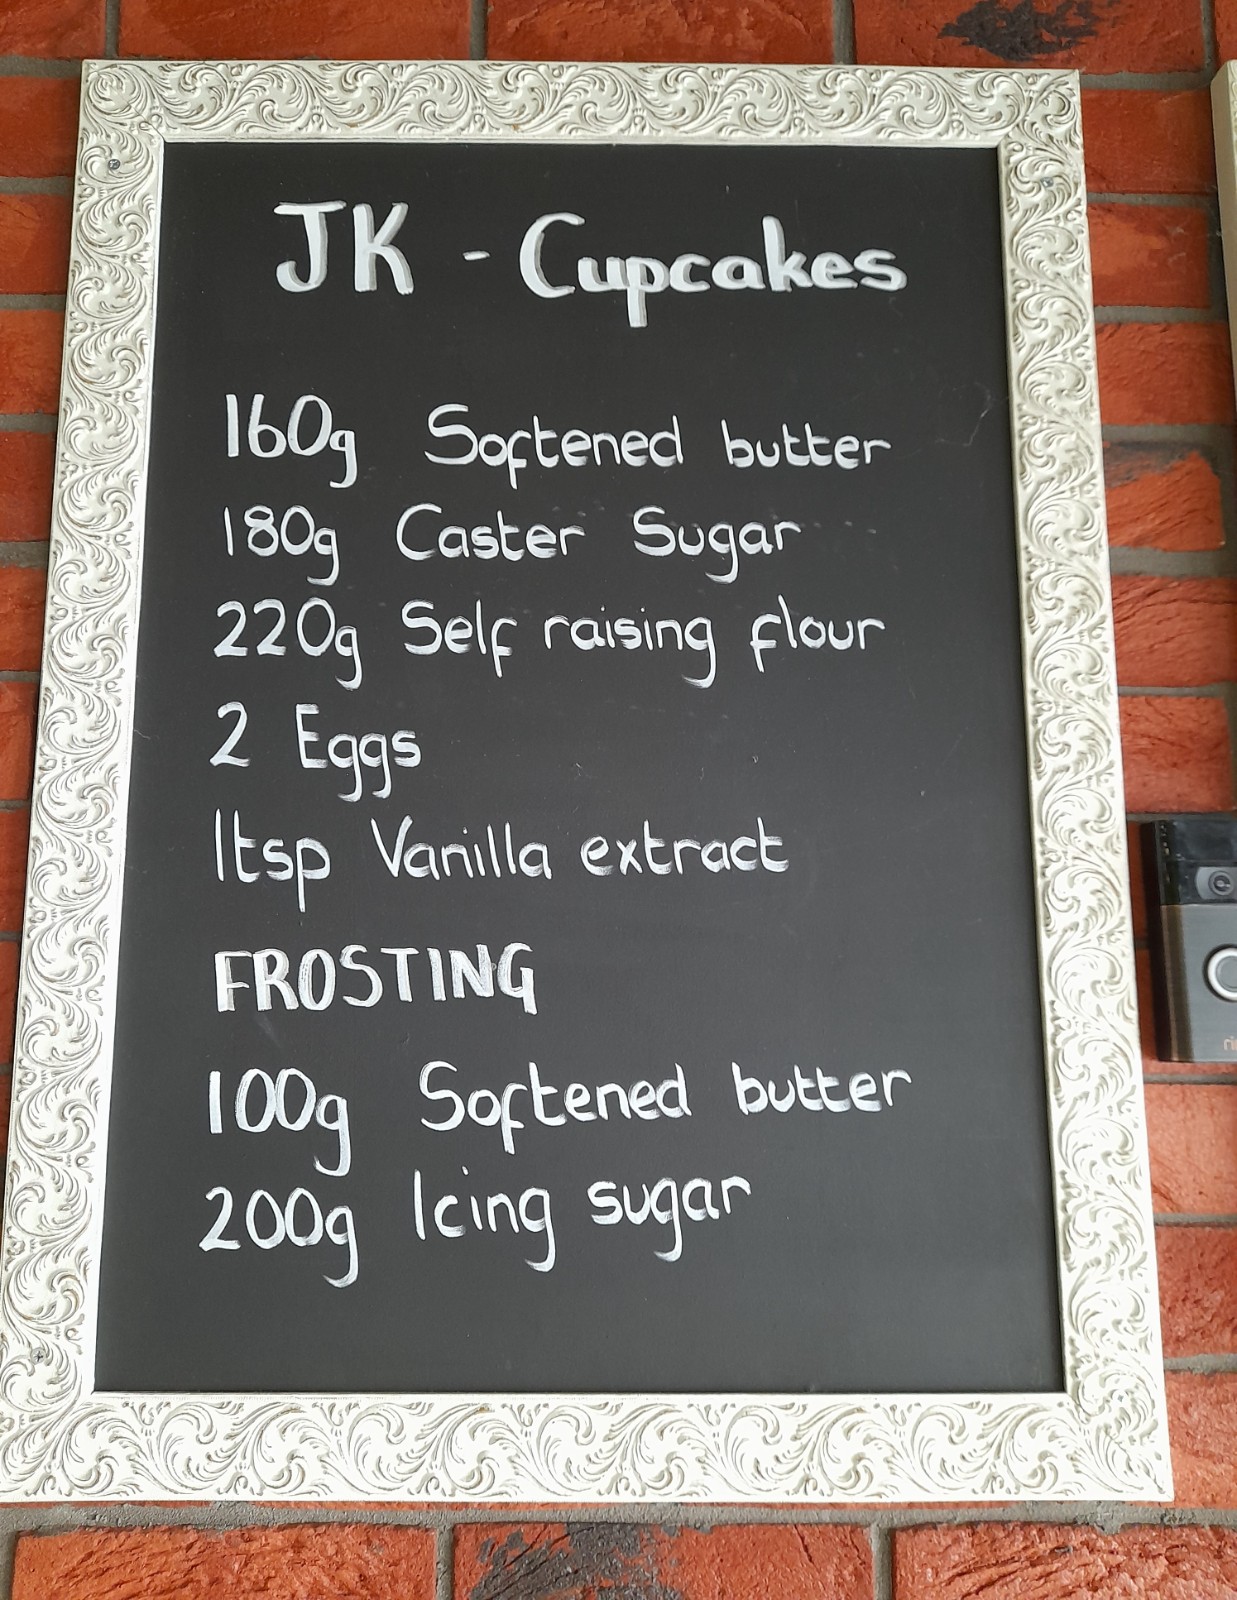 JK - Cupcakes
160g Softened butter
180g Caster Sugar
220g Self raising flour
2 Eggs
1tsp Vanilla extract
FROSTING
100g Softened butter
200g Icing sugar